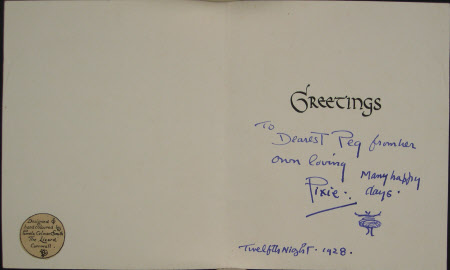 Designed &
hand coloured by
Pamela Colman Smith
The Lizard
Cornwall.
Greetings
To
Dearest Peg from her
own loving
Pixie.
Many happy
days.
Twelfth Night · 1928.